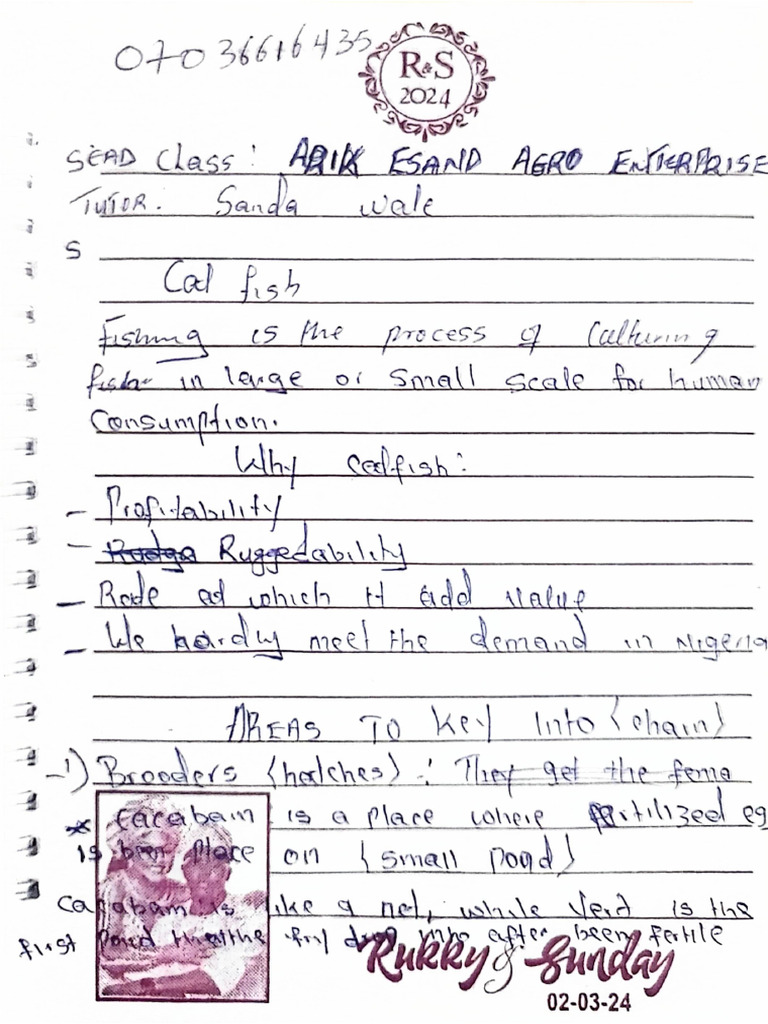 07036616435
R&S
2024
SEAD Class: ARIK ESAND AGRO ENTERPRISE
TUTOR: Sanda wale
S
Cat fish
Fishing is the process of Culturing
fish in large or Small scale for human
Consumption.
Why catfish:
- Profitability
- Ruggedability
- Rate at which it add value
- We hardly meet the demand in Nigeria
AREAS TO key Into (chain)
-1) Brooders (hatches): They get the fema
* Cacabain is a place where fertilized eg
is been place on (small pond)
Cacabain is like a net, while Vert is the
first pond the fry drop into after been fertile
Rukky & Sunday
02-03-24